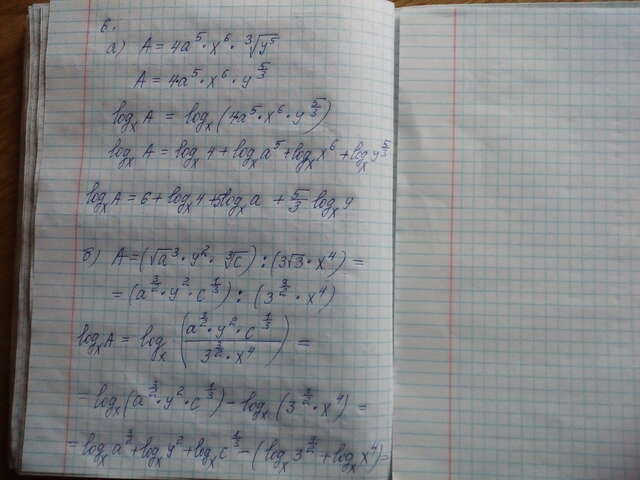 6.
а) A = 4a⁵·x⁶·∛y⁵
A = 4a⁵·x⁶·y^(5/3)
logₓA = logₓ(4a⁵·x⁶·y^(5/3))
logₓA = logₓ4 + logₓa⁵ + logₓx⁶ + logₓy^(5/3)
logₓA = 6 + logₓ4 + 5logₓa + 5/3 logₓy
б) A = (√a³·y²·∛c) : (3√3·x⁴) =
= (a^(3/2)·y²·c^(1/3)) : (3^(3/2)·x⁴)
logₓA = logₓ((a^(3/2)·y²·c^(1/3))/(3^(3/2)·x⁴)) =
= logₓ(a^(3/2)·y²·c^(1/3)) - logₓ(3^(3/2)·x⁴) =
= logₓa^(3/2) + logₓy² + logₓc^(1/3) - (logₓ3^(3/2) + logₓx⁴) =